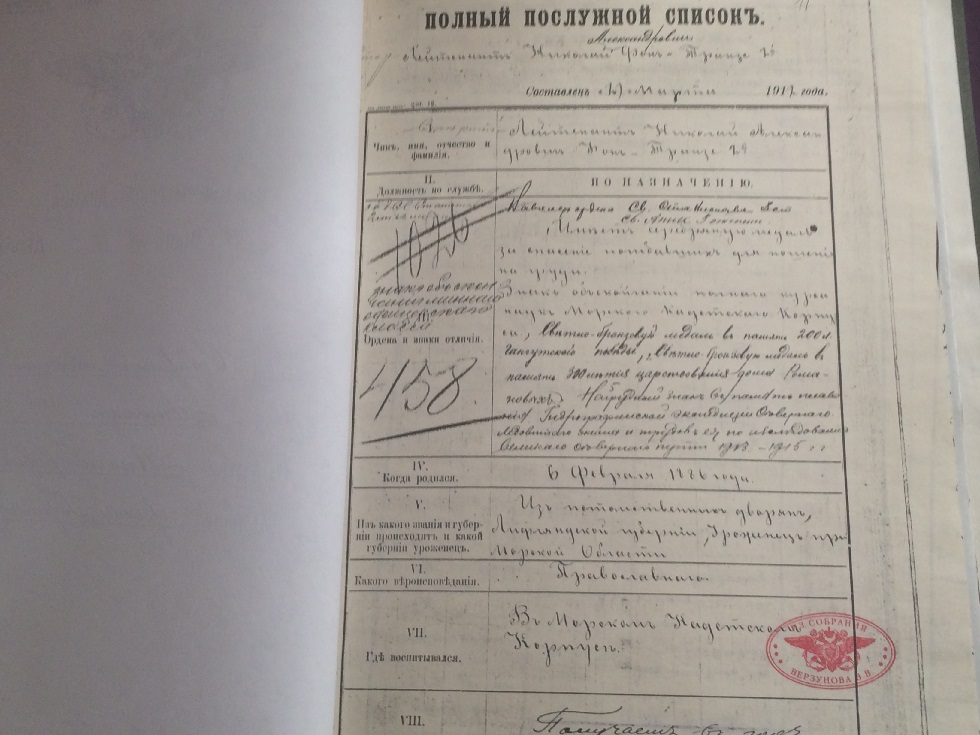 ПОЛНЫЙ ПОСЛУЖНОЙ СПИСОКЪ.
Александровичъ
Лейтенантъ Николай Фонъ-Транзе 2й
Составленъ Марта 1917 года.
Лейтенантъ Николай Алексан
Чинъ, имя, отчество и
фамилія.
дровичъ Фонъ-Транзе 2й
II.
Должность по службѣ.
ПО НАЗНАЧЕНІЮ.
1026
Кавалеръ ордена Св. Станислава 3 ст
Св. Анны 3 степени
Имѣетъ серебряную медаль
за спасеніе погибавшихъ для ношенія
на груди.
знакъ объ окон
чаніи миннаго
офицерскаго
класса
III.
Ордена и знаки отличія.
458
Знакъ объ окончаніи полнаго курса
наукъ Морского Кадетскаго Корпу
са, Свѣтло-бронзовую медаль въ память 200 л.
Гангутской побѣды, Свѣтло-бронзовую медаль въ
память 300 лѣтія царствованія дома Рома-
новыхъ. Нагрудный знакъ въ память плава
нія Гидрографической экспедиціи Сѣвернаго
Ледовитаго океана и трудовъ ея по изслѣдованію
Великаго сѣвернаго пути 1913-1915 гг
IV.
Когда родился.
6 Февраля 1886 года.
V.
Изъ какого званія и губер-
ніи происходитъ и какой
губерніи уроженецъ.
Изъ потомственныхъ дворянъ,
Лифляндской губерніи, Уроженецъ При
Морской Области
VI.
Какого вѣроисповѣданія.
Православнаго.
VII.
Гдѣ воспитывался.
Въ Морскомъ Кадетскомъ
Корпусѣ.
ИЗ СОБРАНИЯ
ВЕРЗУНОВА В В
VIII.
Получаетъ въ годъ